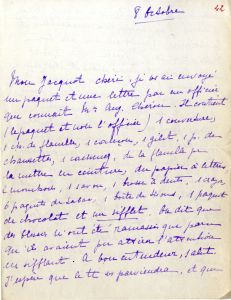 8 Octobre
42
Mon Jacquot chéri, je t'ai envoyé
un paquet et une lettre par un officier
que connait Mr Aug. Il contient
(le paquet et non l'officier) 1 couverture,
1 ch. de flanelle, 1 caleçon, 1 gilet, 1 p. de
chaussettes, 1 de la flanelle pr
la mettre en ceinture, du papier à lettre
2 mouchoirs, 1 savon, 1 brosse à dents, 1
6 paquets de tabac, 1 boîte de 1 paquet
de chocolat et un sifflet. On dit que
des blessés n'ont été ramassés que parce
qu'ils avaient pu attirer l'attention
en sifflant. A bon entendeur, salut.
J'espère que le tt te parviendra, et que